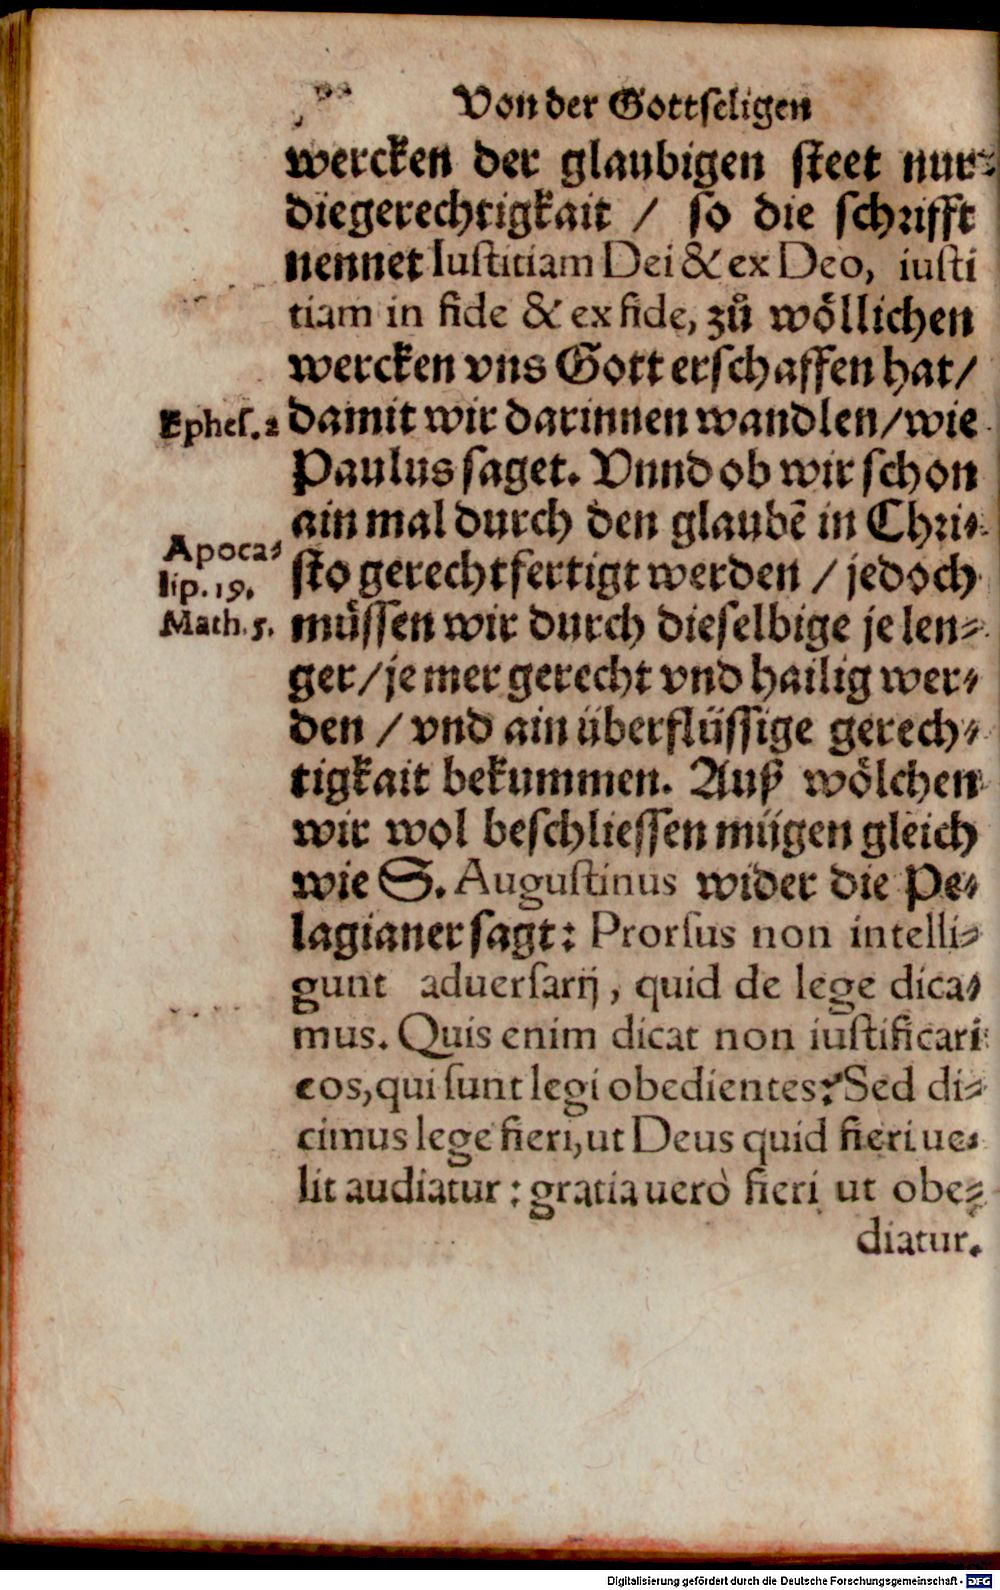 Von der Gottseligen
wercken der glaubigen steet nur
die gerechtigkait / so die schrifft
nennet Iustitiam Dei & ex Deo, iusti
tiam in fide & ex fide, zů wöllichen
wercken vns Gott erschaffen hat/
Ephes. 2
damit wir darinnen wandlen/wie
Paulus saget. Vnnd ob wir schon
ain mal durch den glaubẽ in Chri-
Apoca-
lip. 19.
Math. 5.
sto gerechtfertigt werden / jedoch
müssen wir durch dieselbige je len-
ger/je mer gerecht vnd hailig wer-
den / vnd ain überflüssige gerech-
tigkait bekummen. Auß wölchen
wir wol beschliessen mügen gleich
wie S. Augustinus wider die Pe-
lagianer sagt: Prorsus non intelli-
gunt aduersarij, quid de lege dica-
mus. Quis enim dicat non iustificari
eos, qui sunt legi obedientes? Sed di-
cimus lege fieri, ut Deus quid fieri ue-
lit audiatur: gratia uerò fieri ut obe-
diatur.
Digitalisierung gefördert durch die Deutsche Forschungsgemeinschaft - DFG